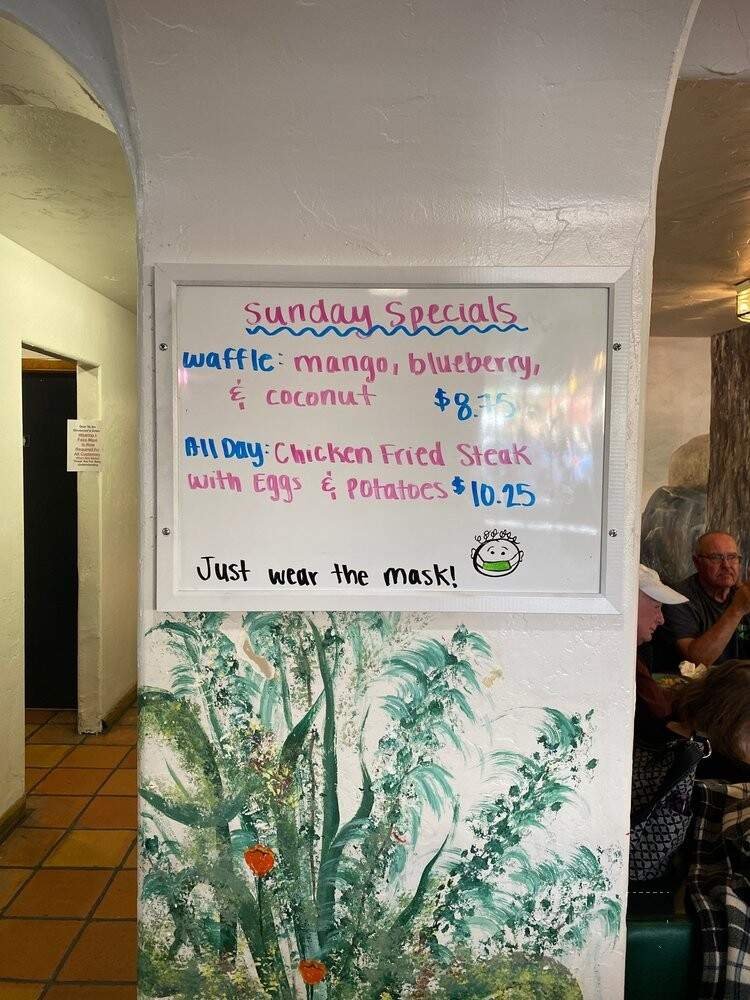 Sunday Specials
waffle: mango, blueberry,
& coconut $8.75
All Day: Chicken Fried Steak
with Eggs & Potatoes $10.25
Just wear the mask!